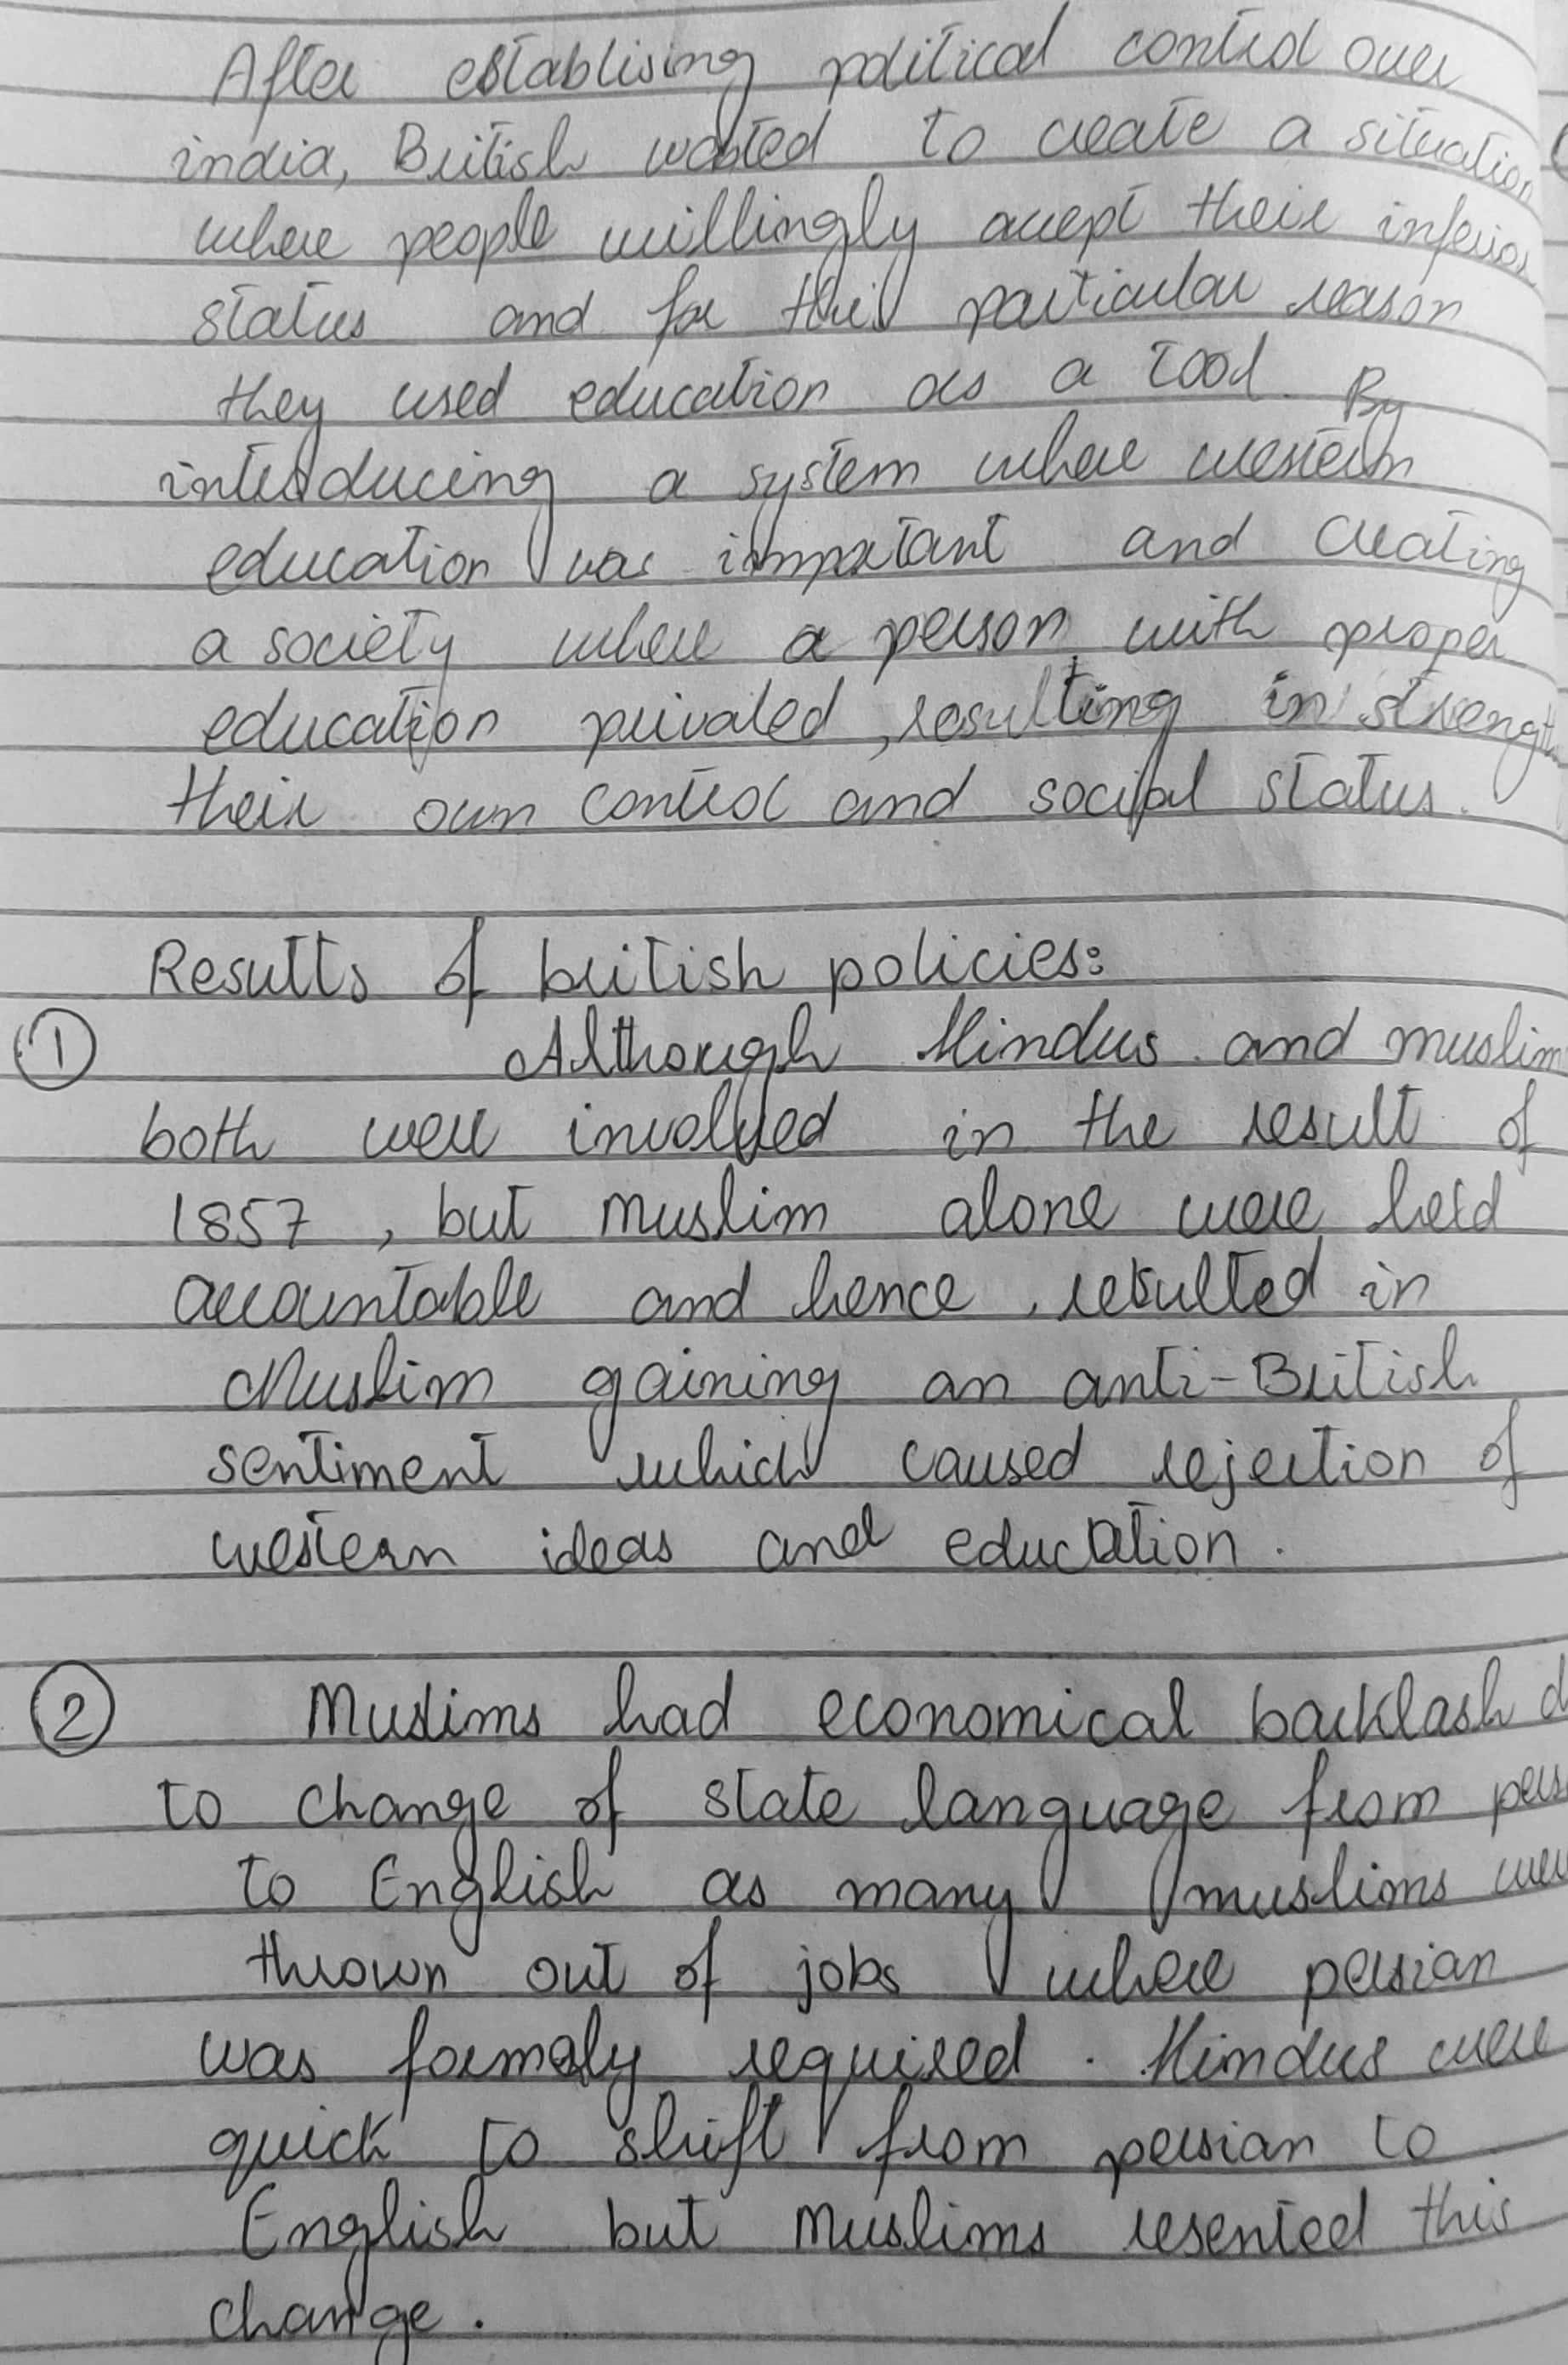 After establising political control over
india, British wanted to create a situation
where people willingly accept their inferior
status and for this particular reason
they used education as a tool. By
introducing a system where western
education was important and creating
a society where a person with proper
education privaled, resulting in strength
their own control and social status.
Results of british policies:
1 Although Hindus and muslim
both were involved in the result of
1857, but muslim alone were held
accountable and hence, resulted in
Muslim gaining an anti-British
sentiment which caused rejection of
western ideas and education.
2 Muslims had economical backlash d
to change of state language from pers
to English as many muslims wer
thrown out of jobs where persian
was formaly required. Hindus were
quick to shift from persian to
English but Muslims resented this
change.